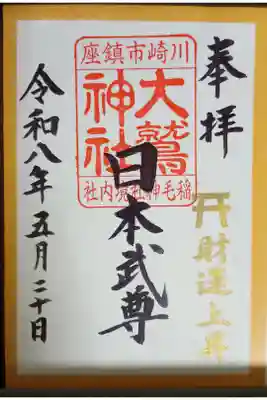 奉拝
財運上昇
川崎市鎮座
大鷲神社
稲毛神社境内社
日本武尊
令和八年五月二十日